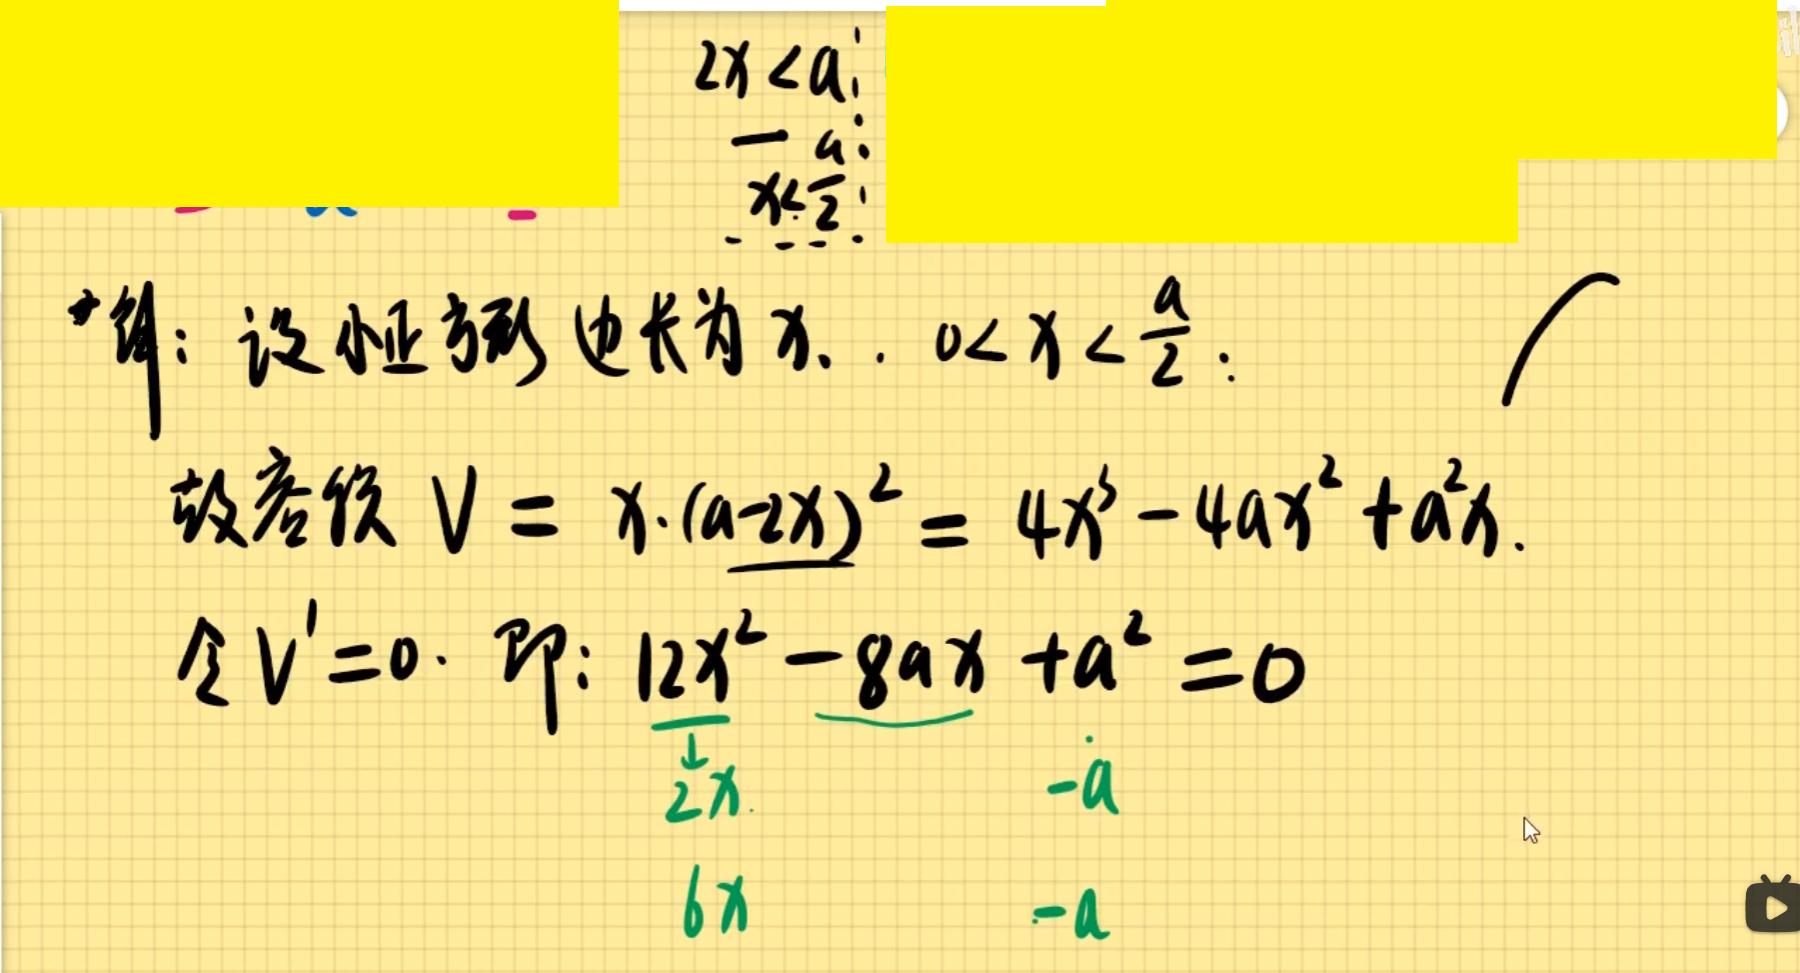 2x<a
x<a/2
解：设小正方形边长为x. . 0<x<a/2.
故容积 V = x·(a-2x)² = 4x³-4ax²+a²x.
令V'=0. 即：12x²-8ax+a²=0
2x -a
6x -a